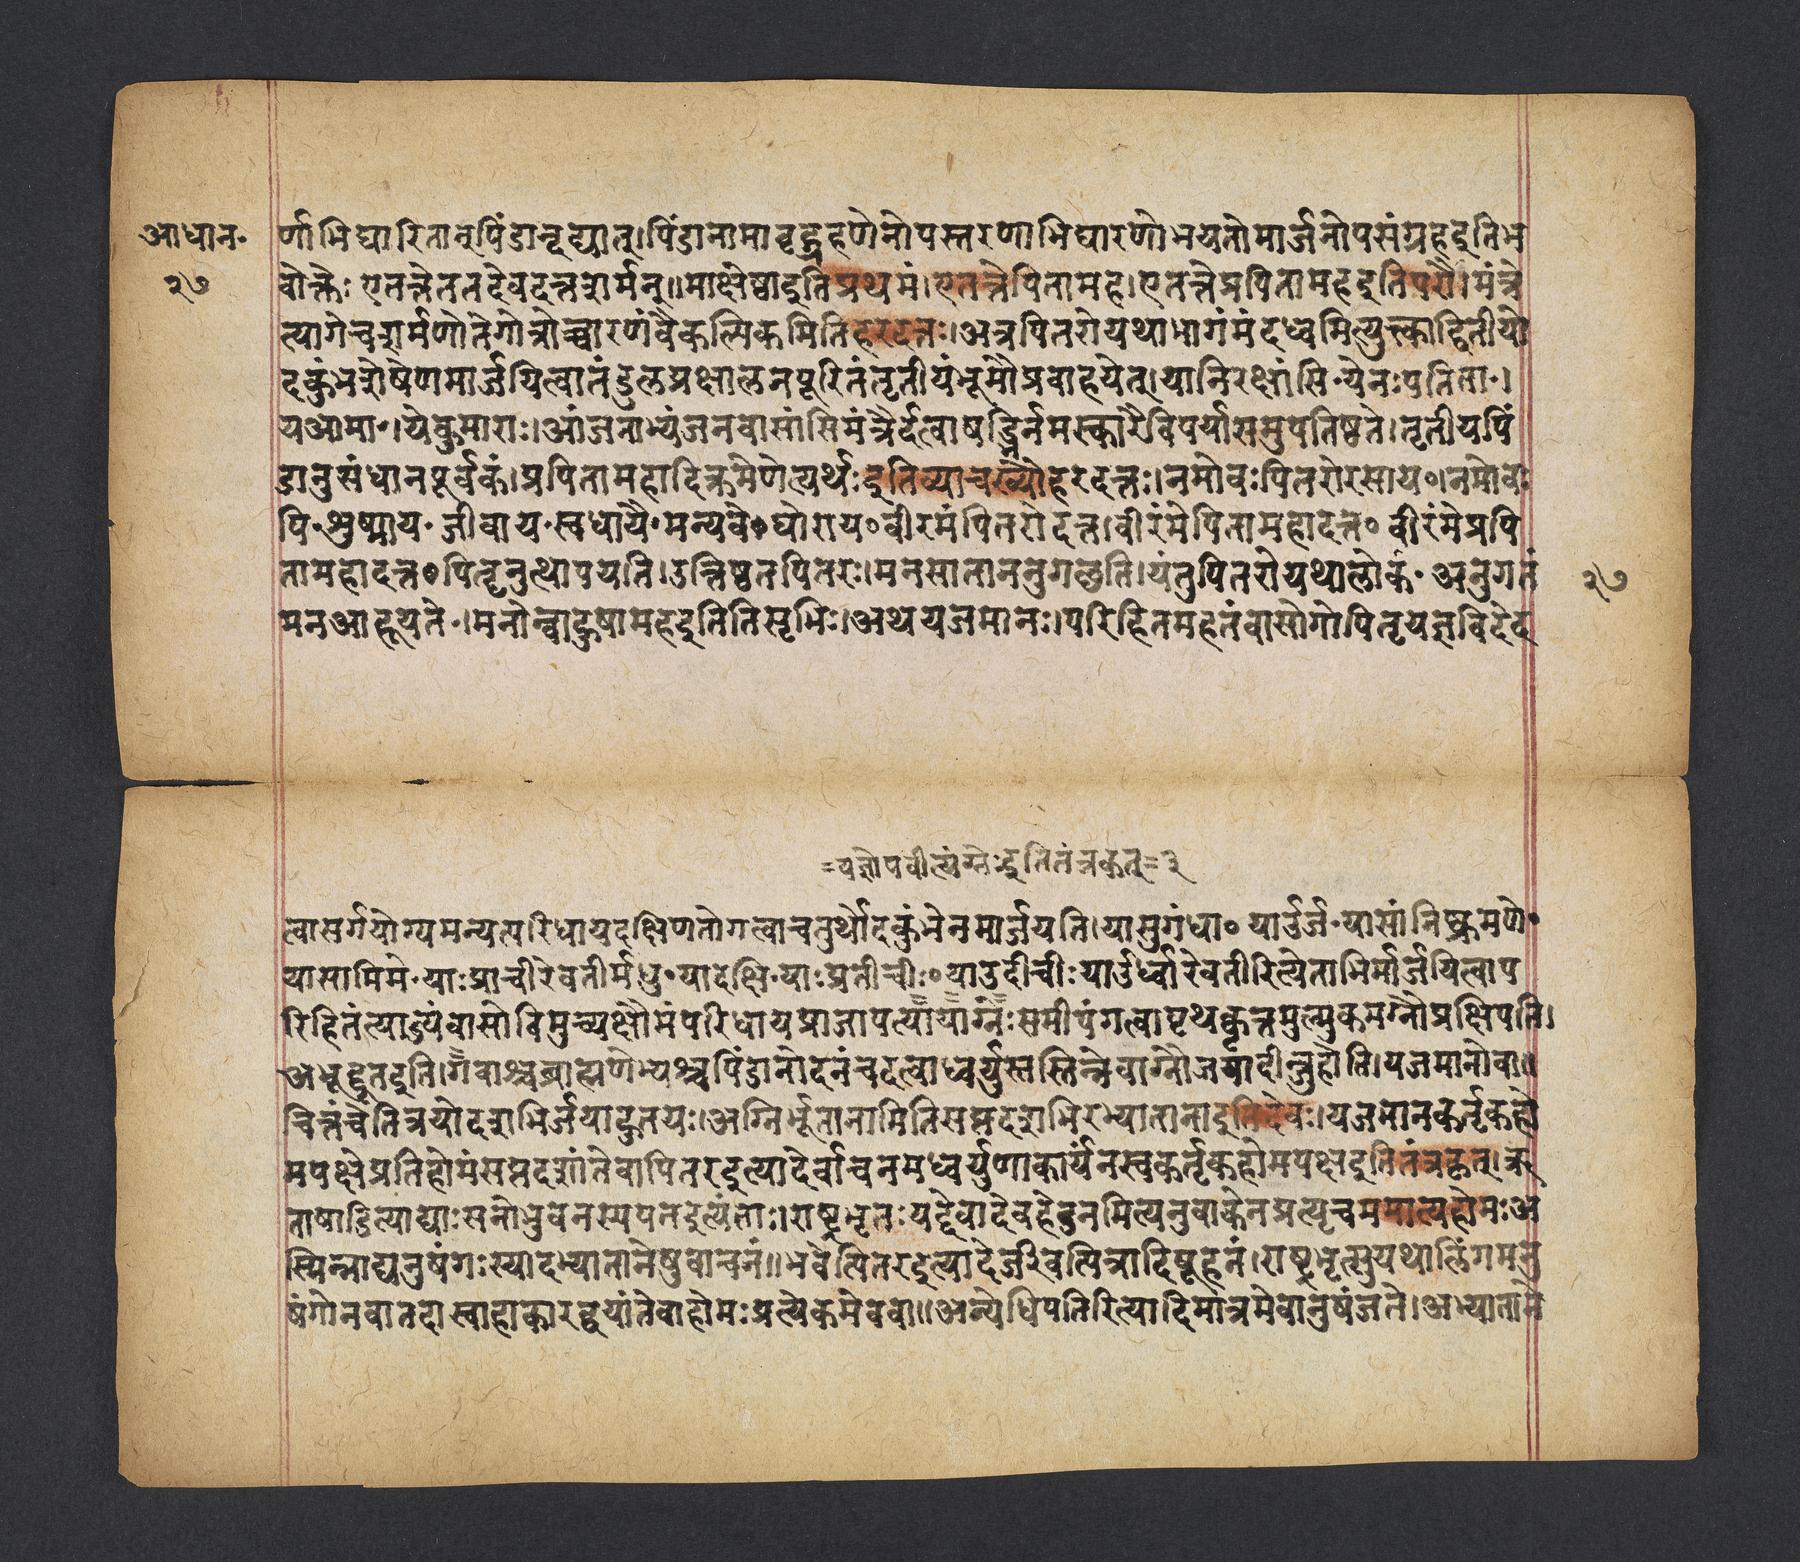 आधान॰
२७
र्णाभिघारितान्पिंडान्नूह्यात्।पिंडानामावृद्ग्रहणेनोपस्तरणाभिघारणोभयतोमार्जनोपसंग्रहइतिभ
वोक्तैः एतत्तेततदेवदत्तशर्मन्॥माक्षेष्ठाइतिप्रथमं।एतत्तेपितामह।एतत्तेप्रपितामहइतिपरौ।मंत्रे
त्यागेचशर्मणोतेगोत्रोच्चारणंवैकल्पिकमितिहरदत्तः।अत्रपितरोयथाभागंमंदध्वमित्युत्क्काद्वितीयो
दकुंभशेषेणमार्जयित्वातंडुलप्रक्षालनपूरितंतृतीयंभूमौप्रवाहयेत्।यानिरक्षांसि॰येनःपतिता॰।
यआमा॰।येकुमाराः।आंजनाभ्यंजनवासांसिमंत्रैर्दत्वाषड्भिर्नमस्कारैविपर्यासमुपतिष्ठते।तृतीयपिं
डानुसंधानपूर्वकं।प्रपितामहादिक्रमेणेत्यर्थःइतिव्याचख्यौहरदत्तः।नमोवःपितरोरसाय॰।नमोवः
पि॰शुष्माय॰ जीवाय॰स्वधायै॰मन्यवे॰घोराय॰वीरमंपितरोदत्त।वीरंमेपितामहादत्त॰ वीरंमेप्रपि
तामहादत्त॰पितॄनुत्थापयति।उत्तिष्ठतपितरः।मनसातानन्नुगछति।यंतुपितरोयथालोकं॰ अनुगतं
२७
मनआहूयते॰।मनोन्वाहुषामहइतितिसृभिः।अथयजमानः।परिहितमहतंवासोगोपितृयज्ञविदेद
=यज्ञोपवीत्यंग्नेःइतितंत्रकृत्=३
त्वासर्गयोग्यमन्यत्परिधायदक्षिणतोगत्वाचतुर्थोदकुंभेनमार्जयति।यासुगंधा॰ याउर्ज॰यासांनिष्क्रमणे॰
यासामिमे॰याःप्राचीरेवतीर्मधु॰यादक्षि॰याःप्रतीचीः॰याउदीचीःयाउर्ध्वारेवतीरित्येताभिर्मार्जयित्वाप
रिहितंत्याज्यंवासोविमुच्यक्षौमंपरिधायप्राजापत्यायाग्नेःसमीपंगत्वापृथक्कृत्तमुल्मुकमग्नौप्रक्षिपति।
अभूद्दूतइति।गवाश्च्वब्राह्मणेभ्यश्च्वपिंडानोदनंचदत्वाध्वर्युस्तस्तिन्नेवाग्नौजयादीन्जुहोति।यजमानोवा॥
चित्तंचेतित्रयोदशभिर्जयाहुतयः।अग्निर्भूतानामितिसप्तदशभिरभ्यातानाइतिदेवः।यजमानकर्तृकहो
मपक्षेप्रतिहोमंसप्तदशांतेवापितरइत्यादेर्वाचनमध्वर्युणाकार्यंनस्वकर्तृकहोमपक्षइतितंत्रकृत्।ऋ
ताषाडित्याद्याःसनोभुवनस्यपतइत्यंताः।राष्ट्रभृतःयद्देवादेवहेडनमित्यनुवाकेनप्रत्यृचममात्यहोमःअ
स्मिन्नाद्यनुषंगःस्यादभ्यातानेषुवाचनं॥भवेत्पितरइत्यादेर्जीवत्पित्रादिषूहनं।राष्ट्रभृत्सुयथालिंगमनु
षंगोनवातदास्वाहाकारद्वयांतेवाहोमःप्रत्येकमेववा॥अन्येधिपतिरित्यादिमात्रमेवानुषंजते।अभ्याताने